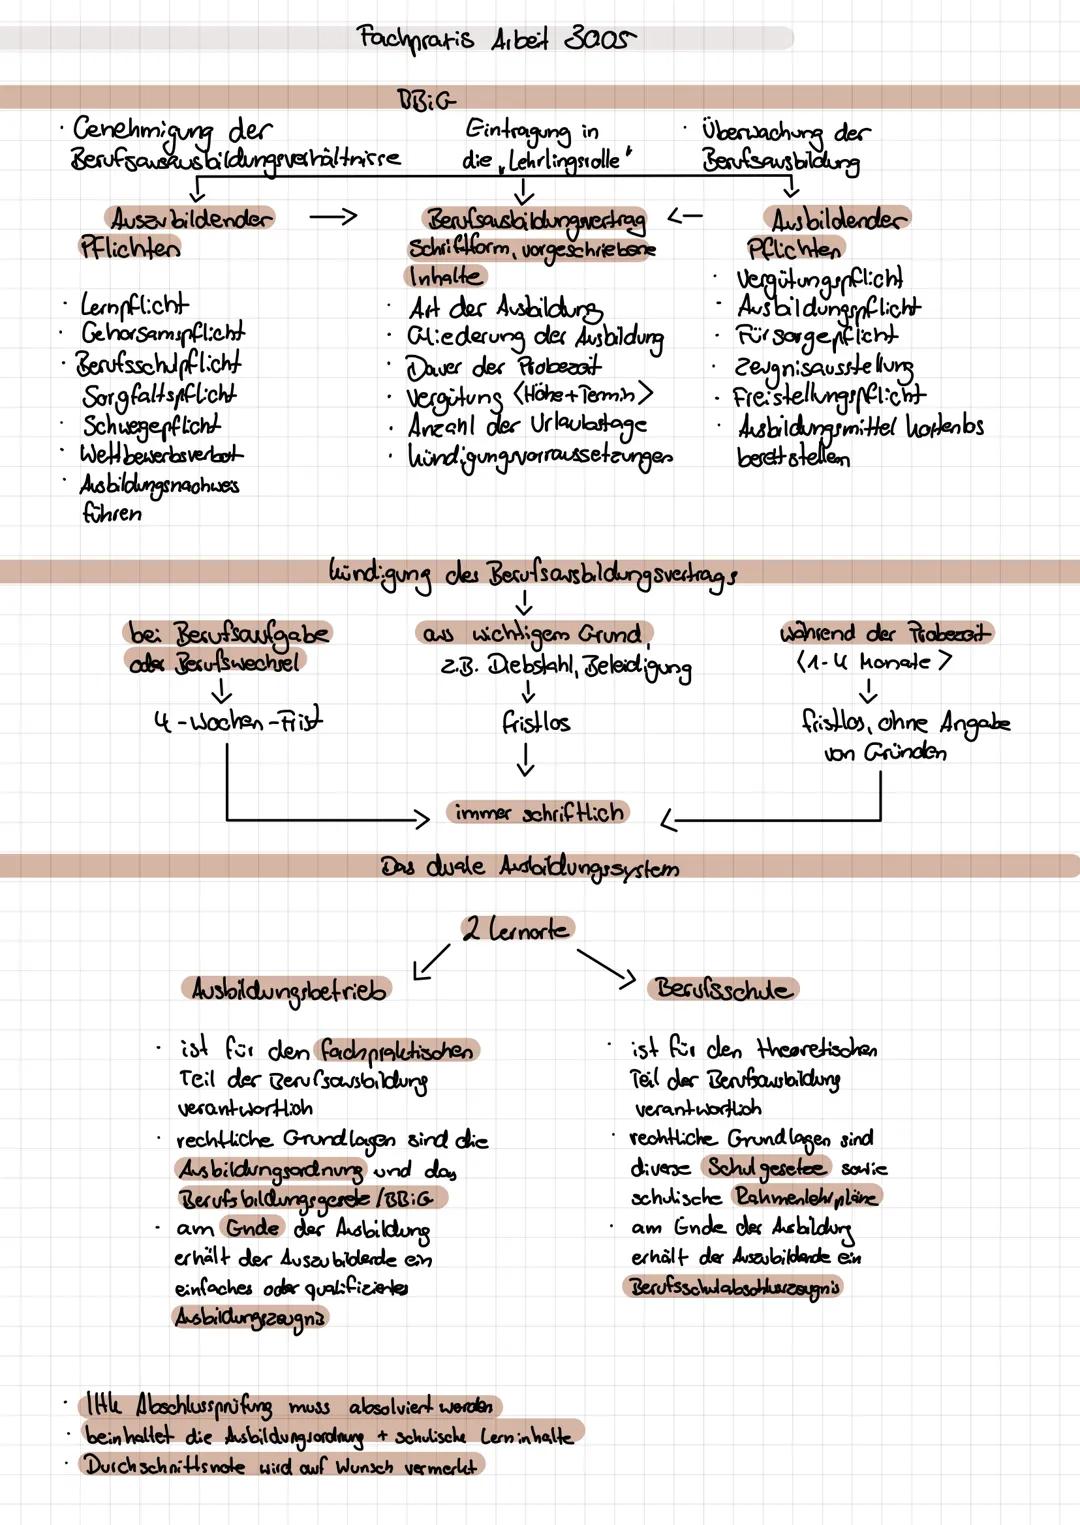 Fachpraxis Arbeit 3005
BBiG
· Genehmigung der
Berufsausausbildungsverhältnisse
Eintragung in
die „Lehrlingsrolle"
· Überwachung der
Berufsausbildung
Auszubildender
Pflichten
· Lernpflicht
· Gehorsamspflicht
· Berufsschulpflicht
Sorgfaltspflicht
· Schwegepflicht
· Wettbewerbsverbot
· Ausbildungsnachweis
führen
Berufsausbildungsvertrag
Schriftform, vorgeschriebene
Inhalte
· Art der Ausbildung
· Gliederung der Ausbildung
· Dauer der Probezeit
· Vergütung (Höhe+Termin)
· Anzahl der Urlaubstage
· Kündigungsvorraussetzungen
Ausbildender
Pflichten
· Vergütungspflicht
· Ausbildungspflicht
· Fürsorgepflicht
· Zeugnisausstellung
· Freistellungspflicht
· Ausbildungsmittel kostenlos
bereitstellen
Kündigung des Berufsausbildungsvertrags
bei Berufsaufgabe
oder Berufswechsel
4-Wochen-Frist
aus wichtigem Grund,
z.B. Diebstahl, Beleidigung
fristlos
während der Probezeit
(1-4 Monate)
fristlos, ohne Angabe
von Gründen
immer schriftlich
Das duale Ausbildungssystem
2 Lernorte
Ausbildungsbetrieb
· ist für den fachpraktischen
Teil der Berufsausbildung
verantwortlich
· rechtliche Grundlagen sind die
Ausbildungsordnung und das
Berufsbildungsgesetz /BBiG
· am Ende der Ausbildung
erhält der Auszubildende ein
einfaches oder qualifiziertes
Ausbildungszeugnis
Berufsschule
· ist für den theoretischen
Teil der Berufsausbildung
verantwortlich
· rechtliche Grundlagen sind
diverse Schulgesetze sowie
schulische Rahmenlehrpläne
· am Ende der Ausbildung
erhält der Auszubildende ein
Berufsschulabschlusszeugnis
· IHK Abschlussprüfung muss absolviert werden
· beinhaltet die Ausbildungsordnung + schulische Lerninhalte
· Durchschnittsnote wird auf Wunsch vermerkt